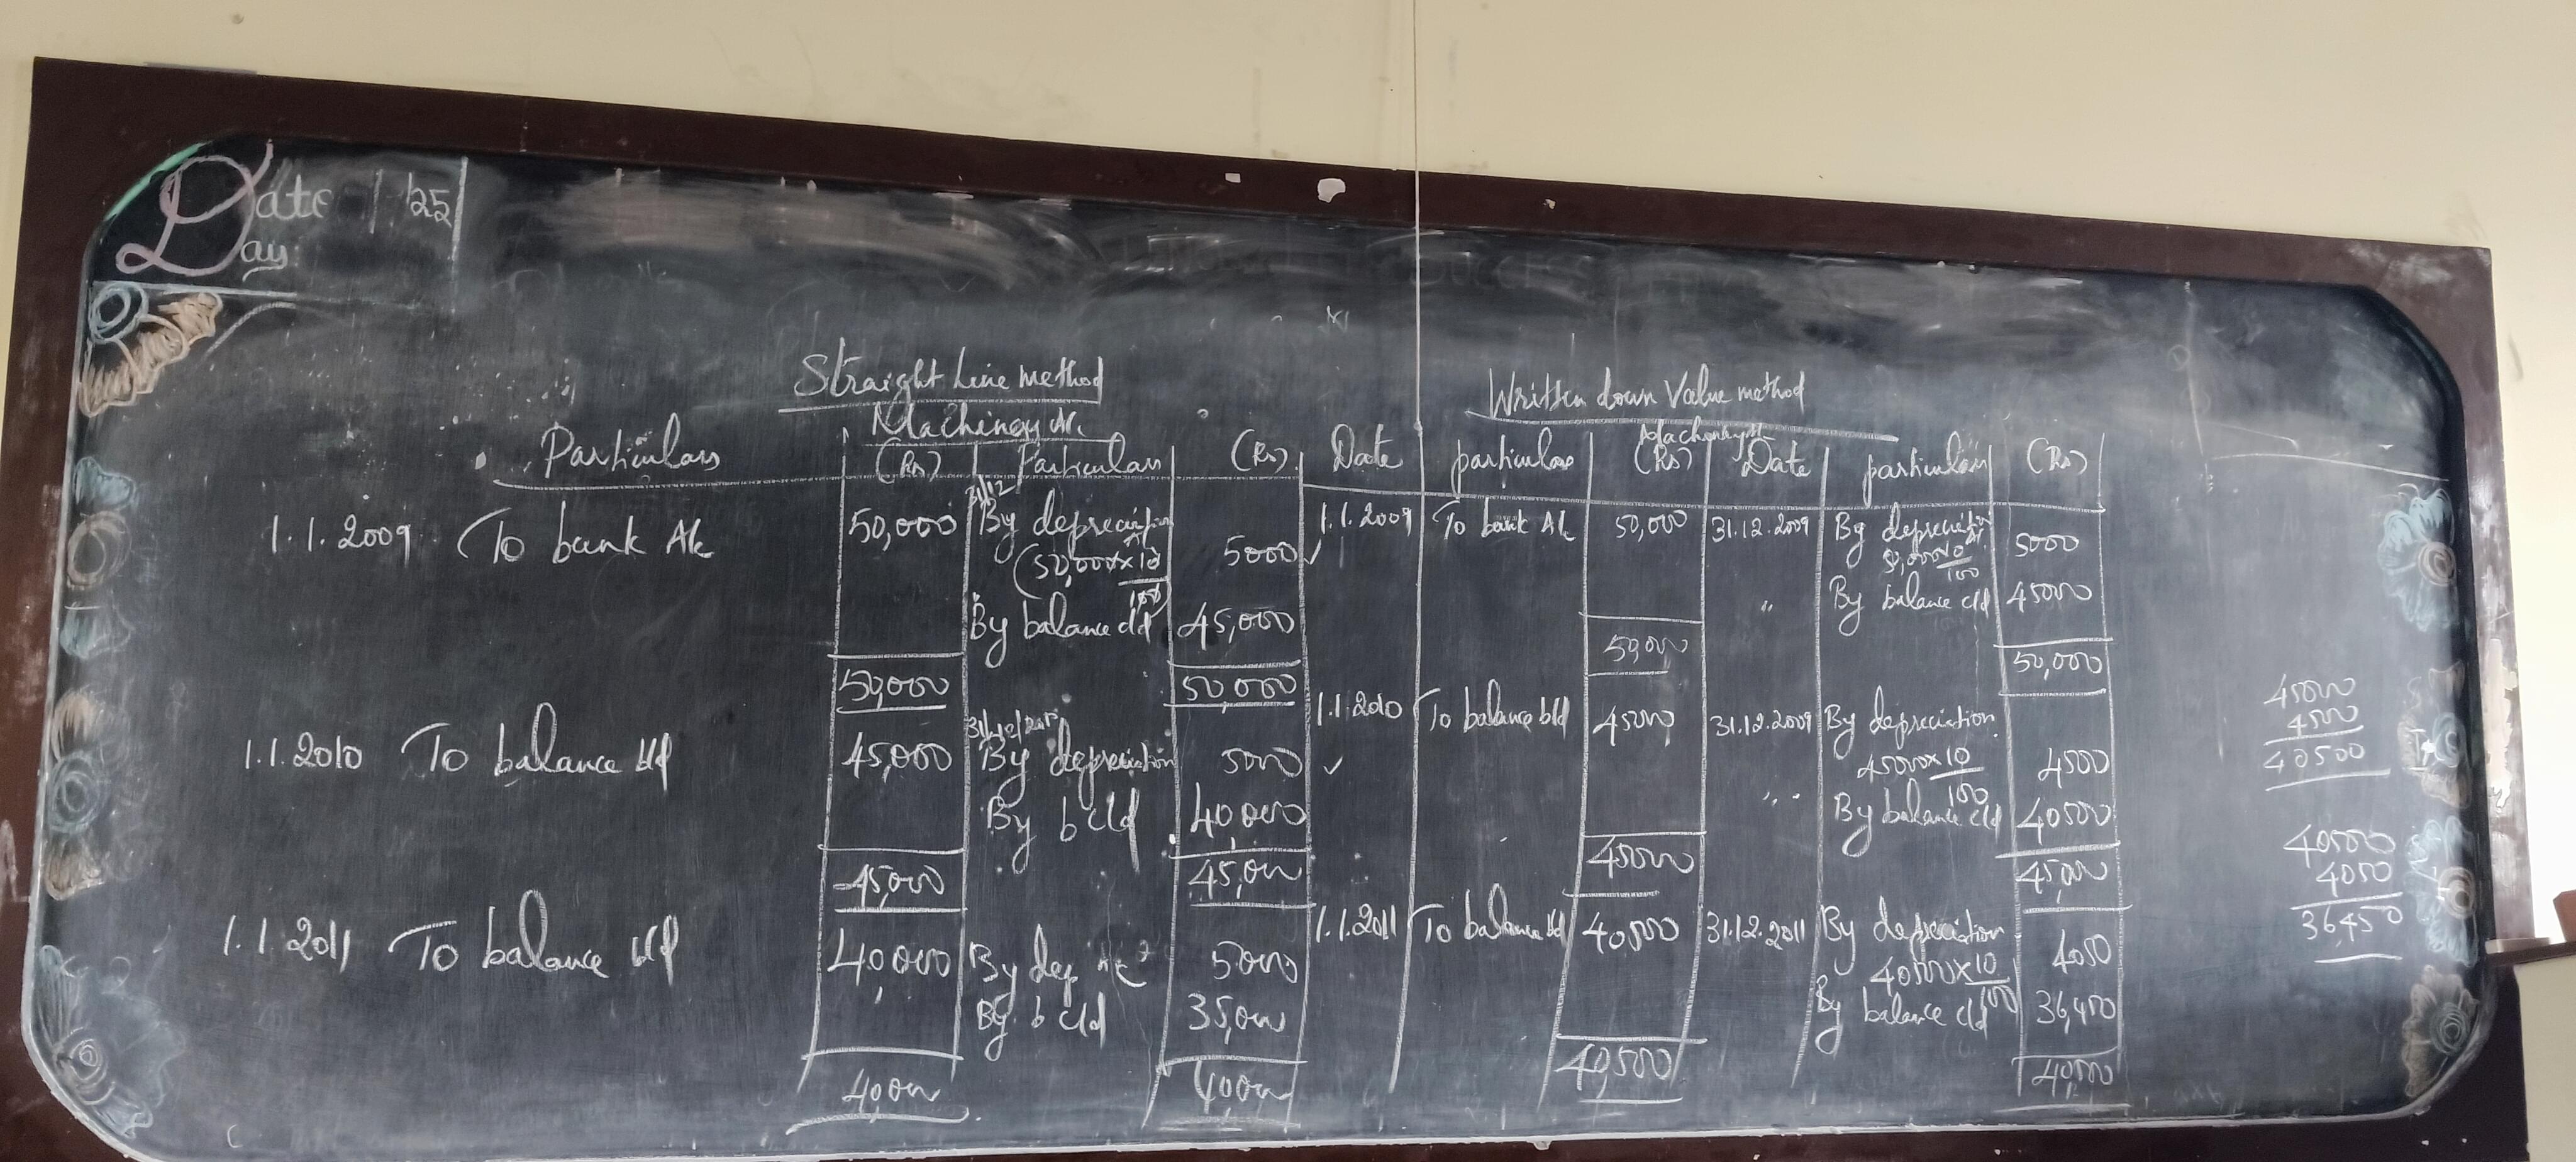 Date / 25
Day:
Straight Line method
Machinery A/c
Particulars (Rs) Particulars (Rs)
31/12
1.1.2009 To bank A/c 50,000 By depreciation A/c
(50,000×10/100) 5000 ✓
By balance c/d 45,000
50,000 50000
31/12/2010
1.1.2010 To balance b/d 45,000 By depreciation 5000 ✓
By b c/d 40,000
45,000 45,000
1.1.2011 To balance b/d 40,000 By dep A/c 5000
By b c/d 35,000
40,000 40,000
Written down Value method
Machinery A/c
Date particulars (Rs) Date particulars (Rs)
1.1.2009 To bank A/c 50,000 31.12.2009 By depreciation A/c
50,000×10/100 5000
" By balance c/d 45000
50,000 50,000
1.1.2010 To balance b/d 45000 31.12.2009 By depreciation
45000×10/100 4500
" By balance c/d 40500
45000 45,000
1.1.2011 To balance b/d 40,500 31.12.2011 By depreciation
40500×10/100 4050
By balance c/d 36,450
40,500 40500
45000
4500
40500
40500
4050
36,450